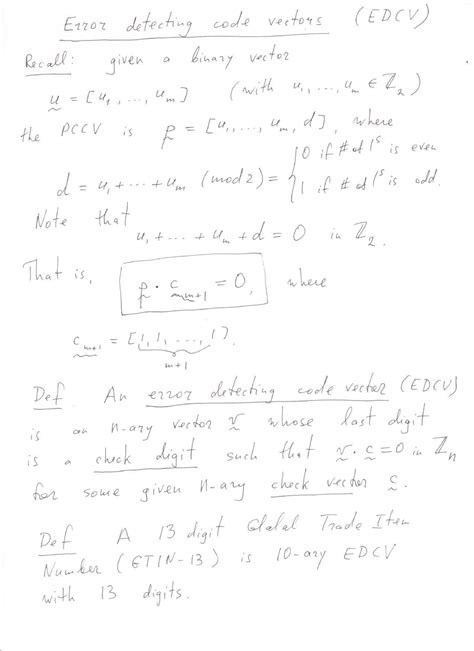 Error detecting code vectors (EDCV)
Recall: given a binary vector
u = [u₁, ..., uₘ] (with u₁, ..., uₘ ∈ ℤ₂)
the PCCV is p = [u₁, ..., uₘ, d], where
d = u₁ + ... + uₘ (mod 2) = { 0 if # of 1ˢ is even
1 if # of 1ˢ is odd.
Note that
u₁ + ... + uₘ + d = 0 in ℤ₂.
That is, p · cₘ₊₁ = 0, where
cₘ₊₁ = [1, 1, ..., 1].
m+1
Def. An error detecting code vector (EDCV)
is an n-ary vector v whose last digit
is a check digit such that v · c = 0 in ℤₙ
for some given n-ary check vector c.
Def A 13 digit Glalal Trade Item
Number (GTIN-13) is 10-ary EDCV
with 13 digits.